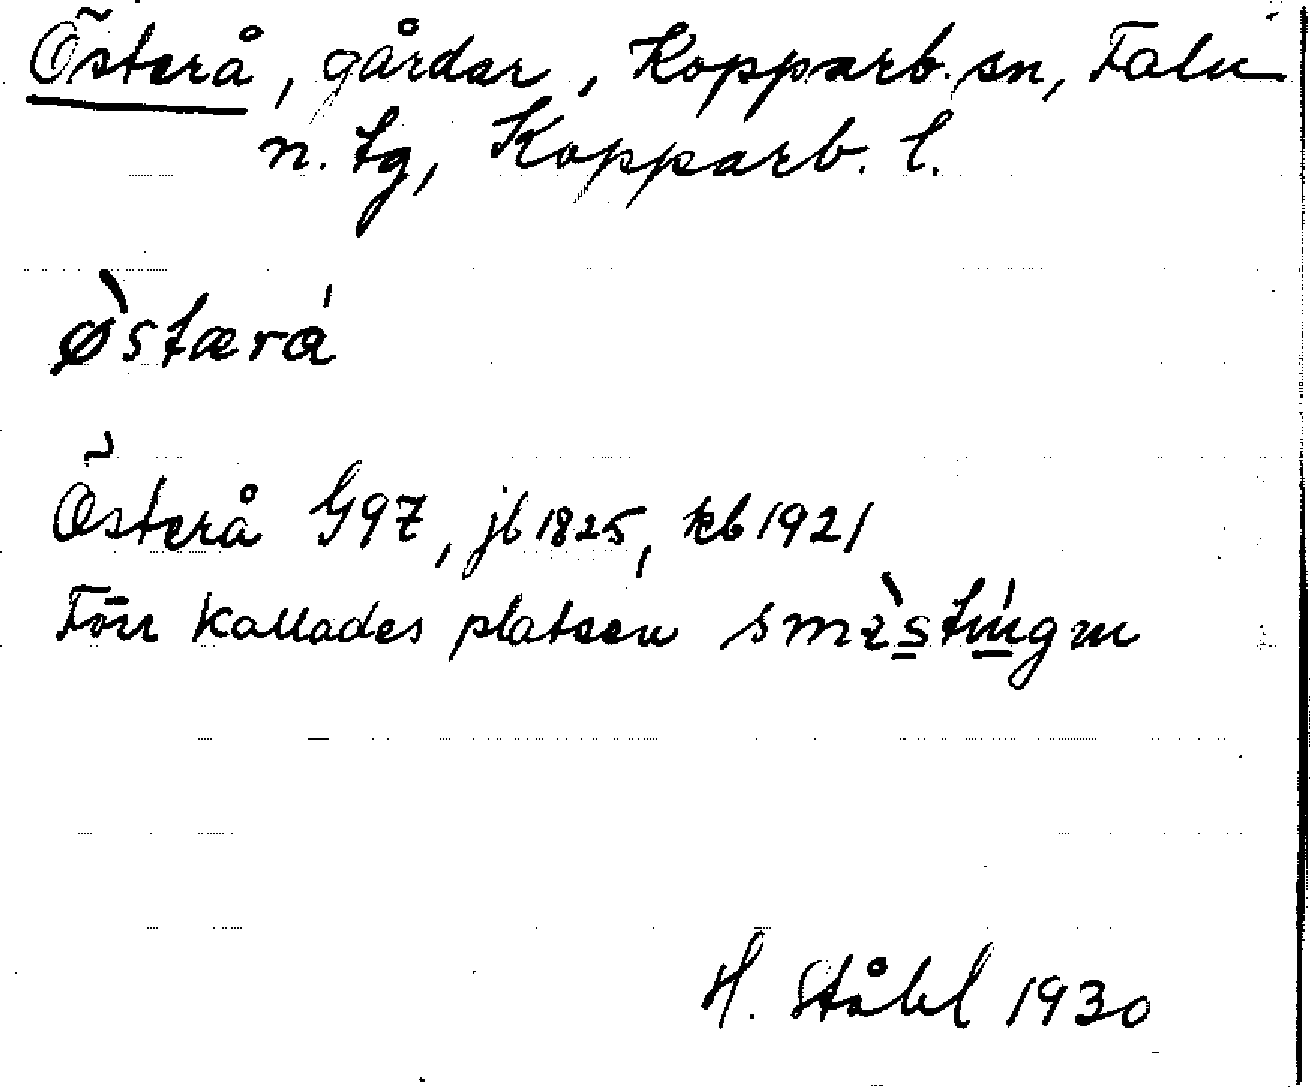 Österå, gårdar, Kopparb. sn, Falu
n. tg, Kopparb. l.
Østærå
Österå G97, jb 1825, kb 1921
Förr kallades platsen
H. Ståhl 1930